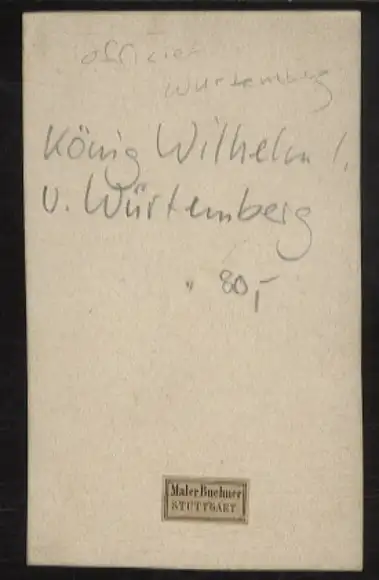 officier
Wurtemberg
König Wilhelm I.
v. Würtemberg
" 80,-
Maler Buchner
STUTTGART